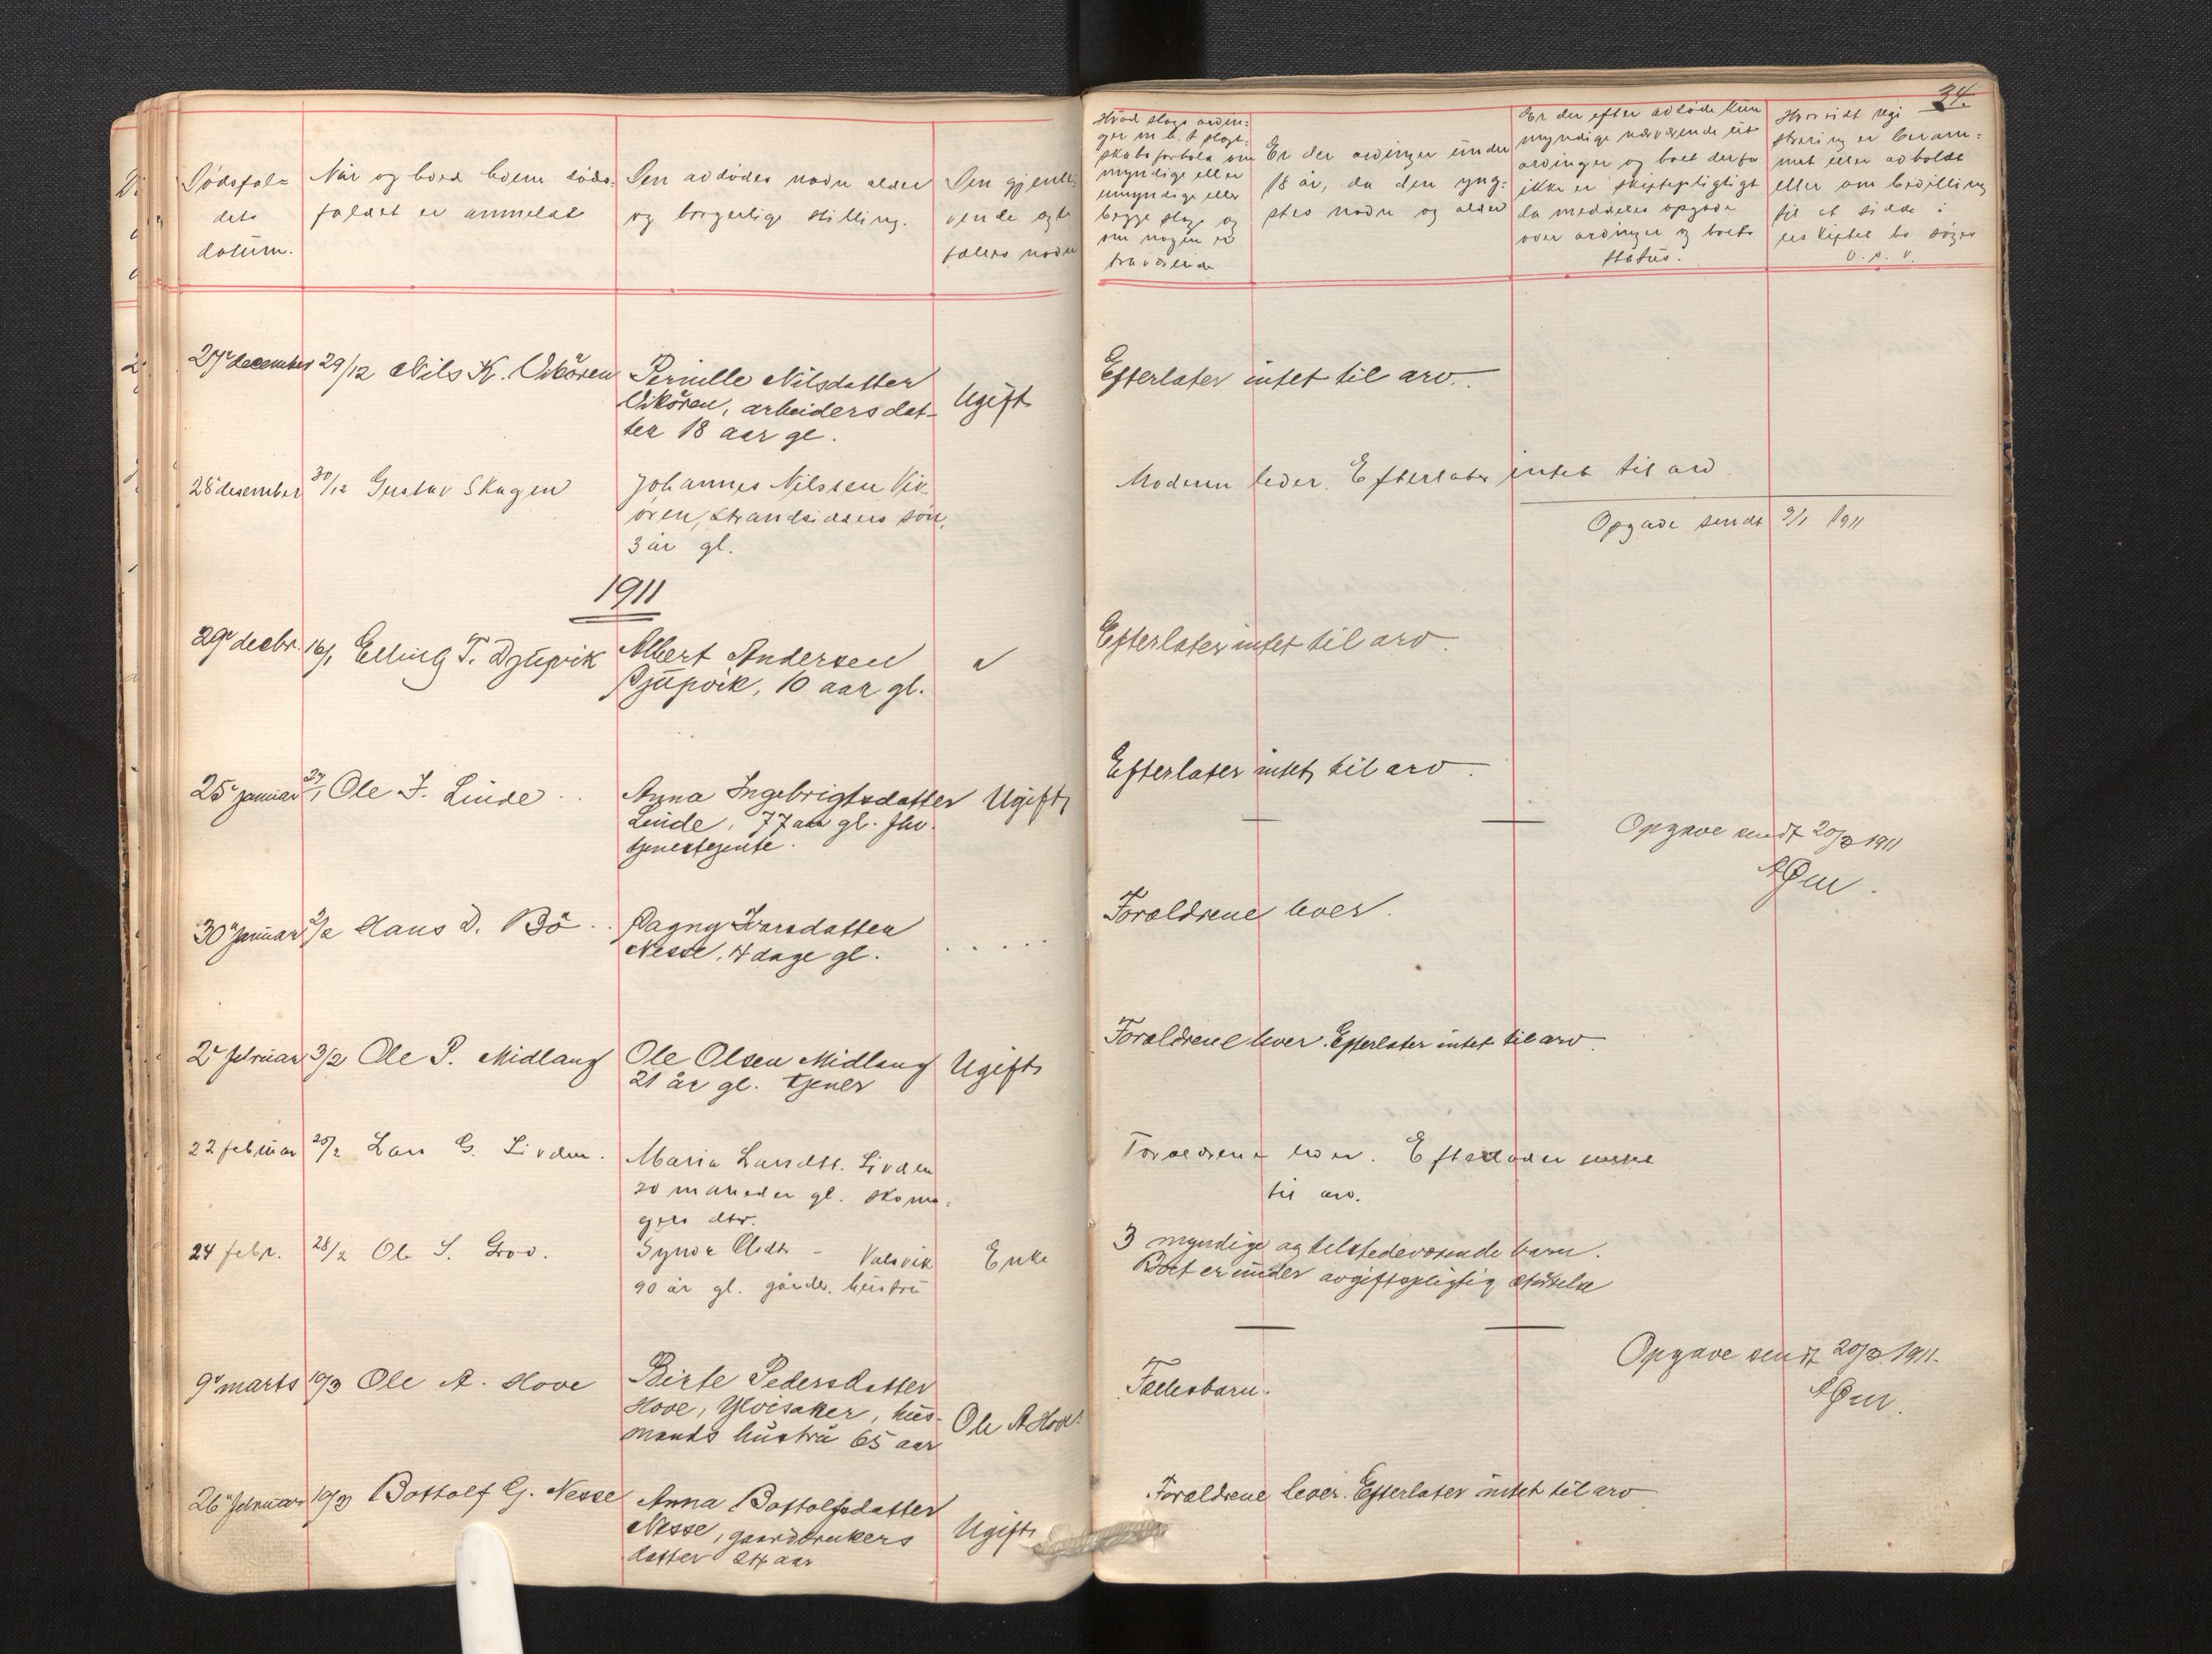 34.
Dødsfal=
dets
datum.
Når og hvem døds=
faldet er anmeldt
Den avdødes navn alder
og borgerlige stilling.
Den gjenle=
vende egte
fælles navn
Hvad slags arvin=
ger m. h. t. slegt=
skabsforhold om
myndige eller
umyndige eller
begge slags og
om nogen er
fraværende
Er der arvinger under
18 år, da den yng=
stes navn og alder
Er der efter avdøde kun
myndige nærværende
arvinger og boet derfor
ikke er skiftepligtigt
da meddeles opgave
over arvinger og boets
status.
Hvorvidt regi
strering er beram=
met eller avholdt
eller om bevilling
til at sidde i
uskiftet bo søges
o. s. v.
27de december 29/12 Nils K. Vikören
Pernille Nilsdatter
Vikören, arbeidersdat-
ter 18 aar gl.
Ugift
Efterlater intet til arv.
28 desember 30/12 Gustav Skagen
Johannes Nilssen Vik
ören, strandsidders søn,
3 år gl.
Moderen lever. Efterlater intet til arv
Opgave sendt 9/1 1911
1911
29de decbr. 16/1 Elling T. Djupvik
Albert Andersen
Djupvik, 10 aar gl.
Efterlater intet til arv.
25 januar 27/1 Ole J. Linde
Anna Ingebrigtsdatter
Linde, 77 aar gl. fhv.
tjenestejente.
Ugift
Efterlater intet til arv.
Opgave sendt 20/3 1911
30 januar 2/2 Hans D. Bö
Dagny Ivarsdatter
Nesse, 4 dage gl.
Forældrene lever.
2 februar 3/2 Ole P. Midlang
Ole Olsen Midlang
21 år gl. tjener
Ugift
Forældrene lever. Efterlater intet til arv.
22 februar 25/2 Lars G. Livden.
Maria Larsdtr. Livden
20 maneder gl. skoma=
gers dtr.
Forældrene lever. Efterlader intet
til arv.
24 febr. 28/2 Ole S. Grov.
Synva Olsdtr - Valsvik
90 år gl. gårdbr. hustru
Enke
3 myndige og tilstedeværende barn.
Boet er under avgiftspligtig størrelse
Opgave sendt 20/3 1911.
9 marts 10/3 Ole A. Hove
Birte Pedersdatter
Hove, Ylvisaker, hus-
mands hustru 65 aar
Ole A Hove
Fællesbarn.
26 februar 10/3 Bottolf G. Nesse
Anna Bottolfsdatter
Nesse, gaardbrukers
datter 24 aar
Ugift
Forældrene lever. Efterlater intet til arv